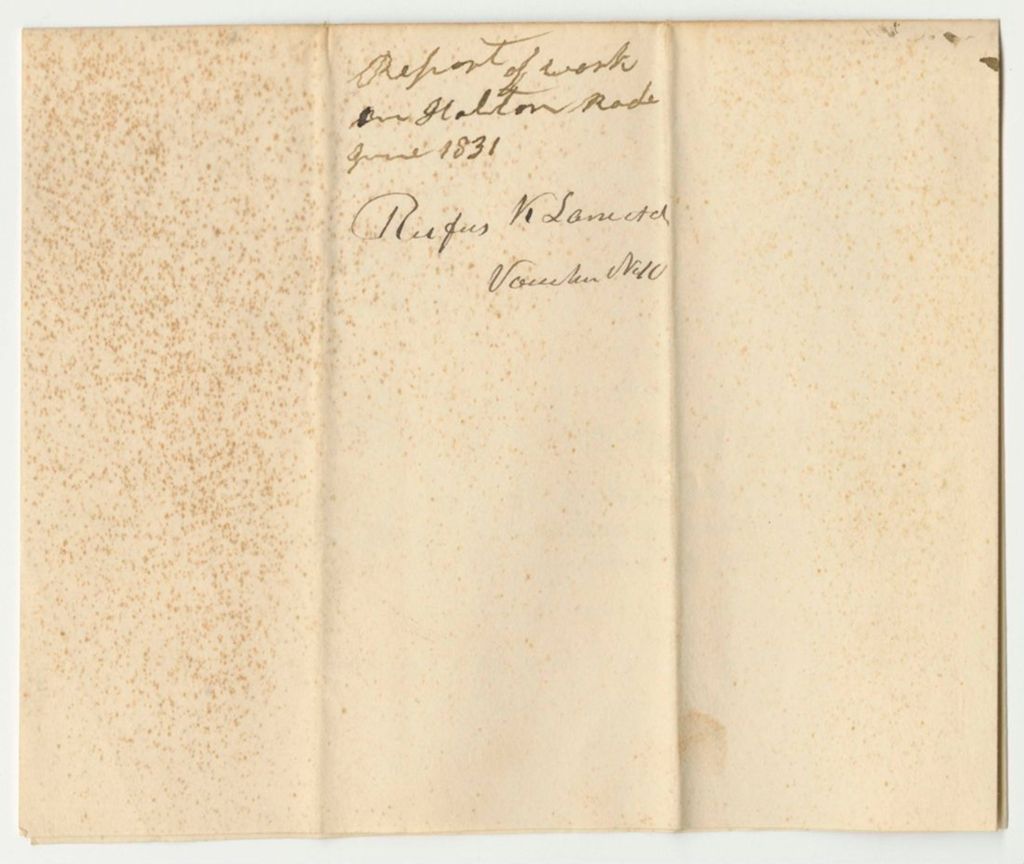 Report of work
on Holton Rode
June 1831
Rufus K Lane
Voucher No 10